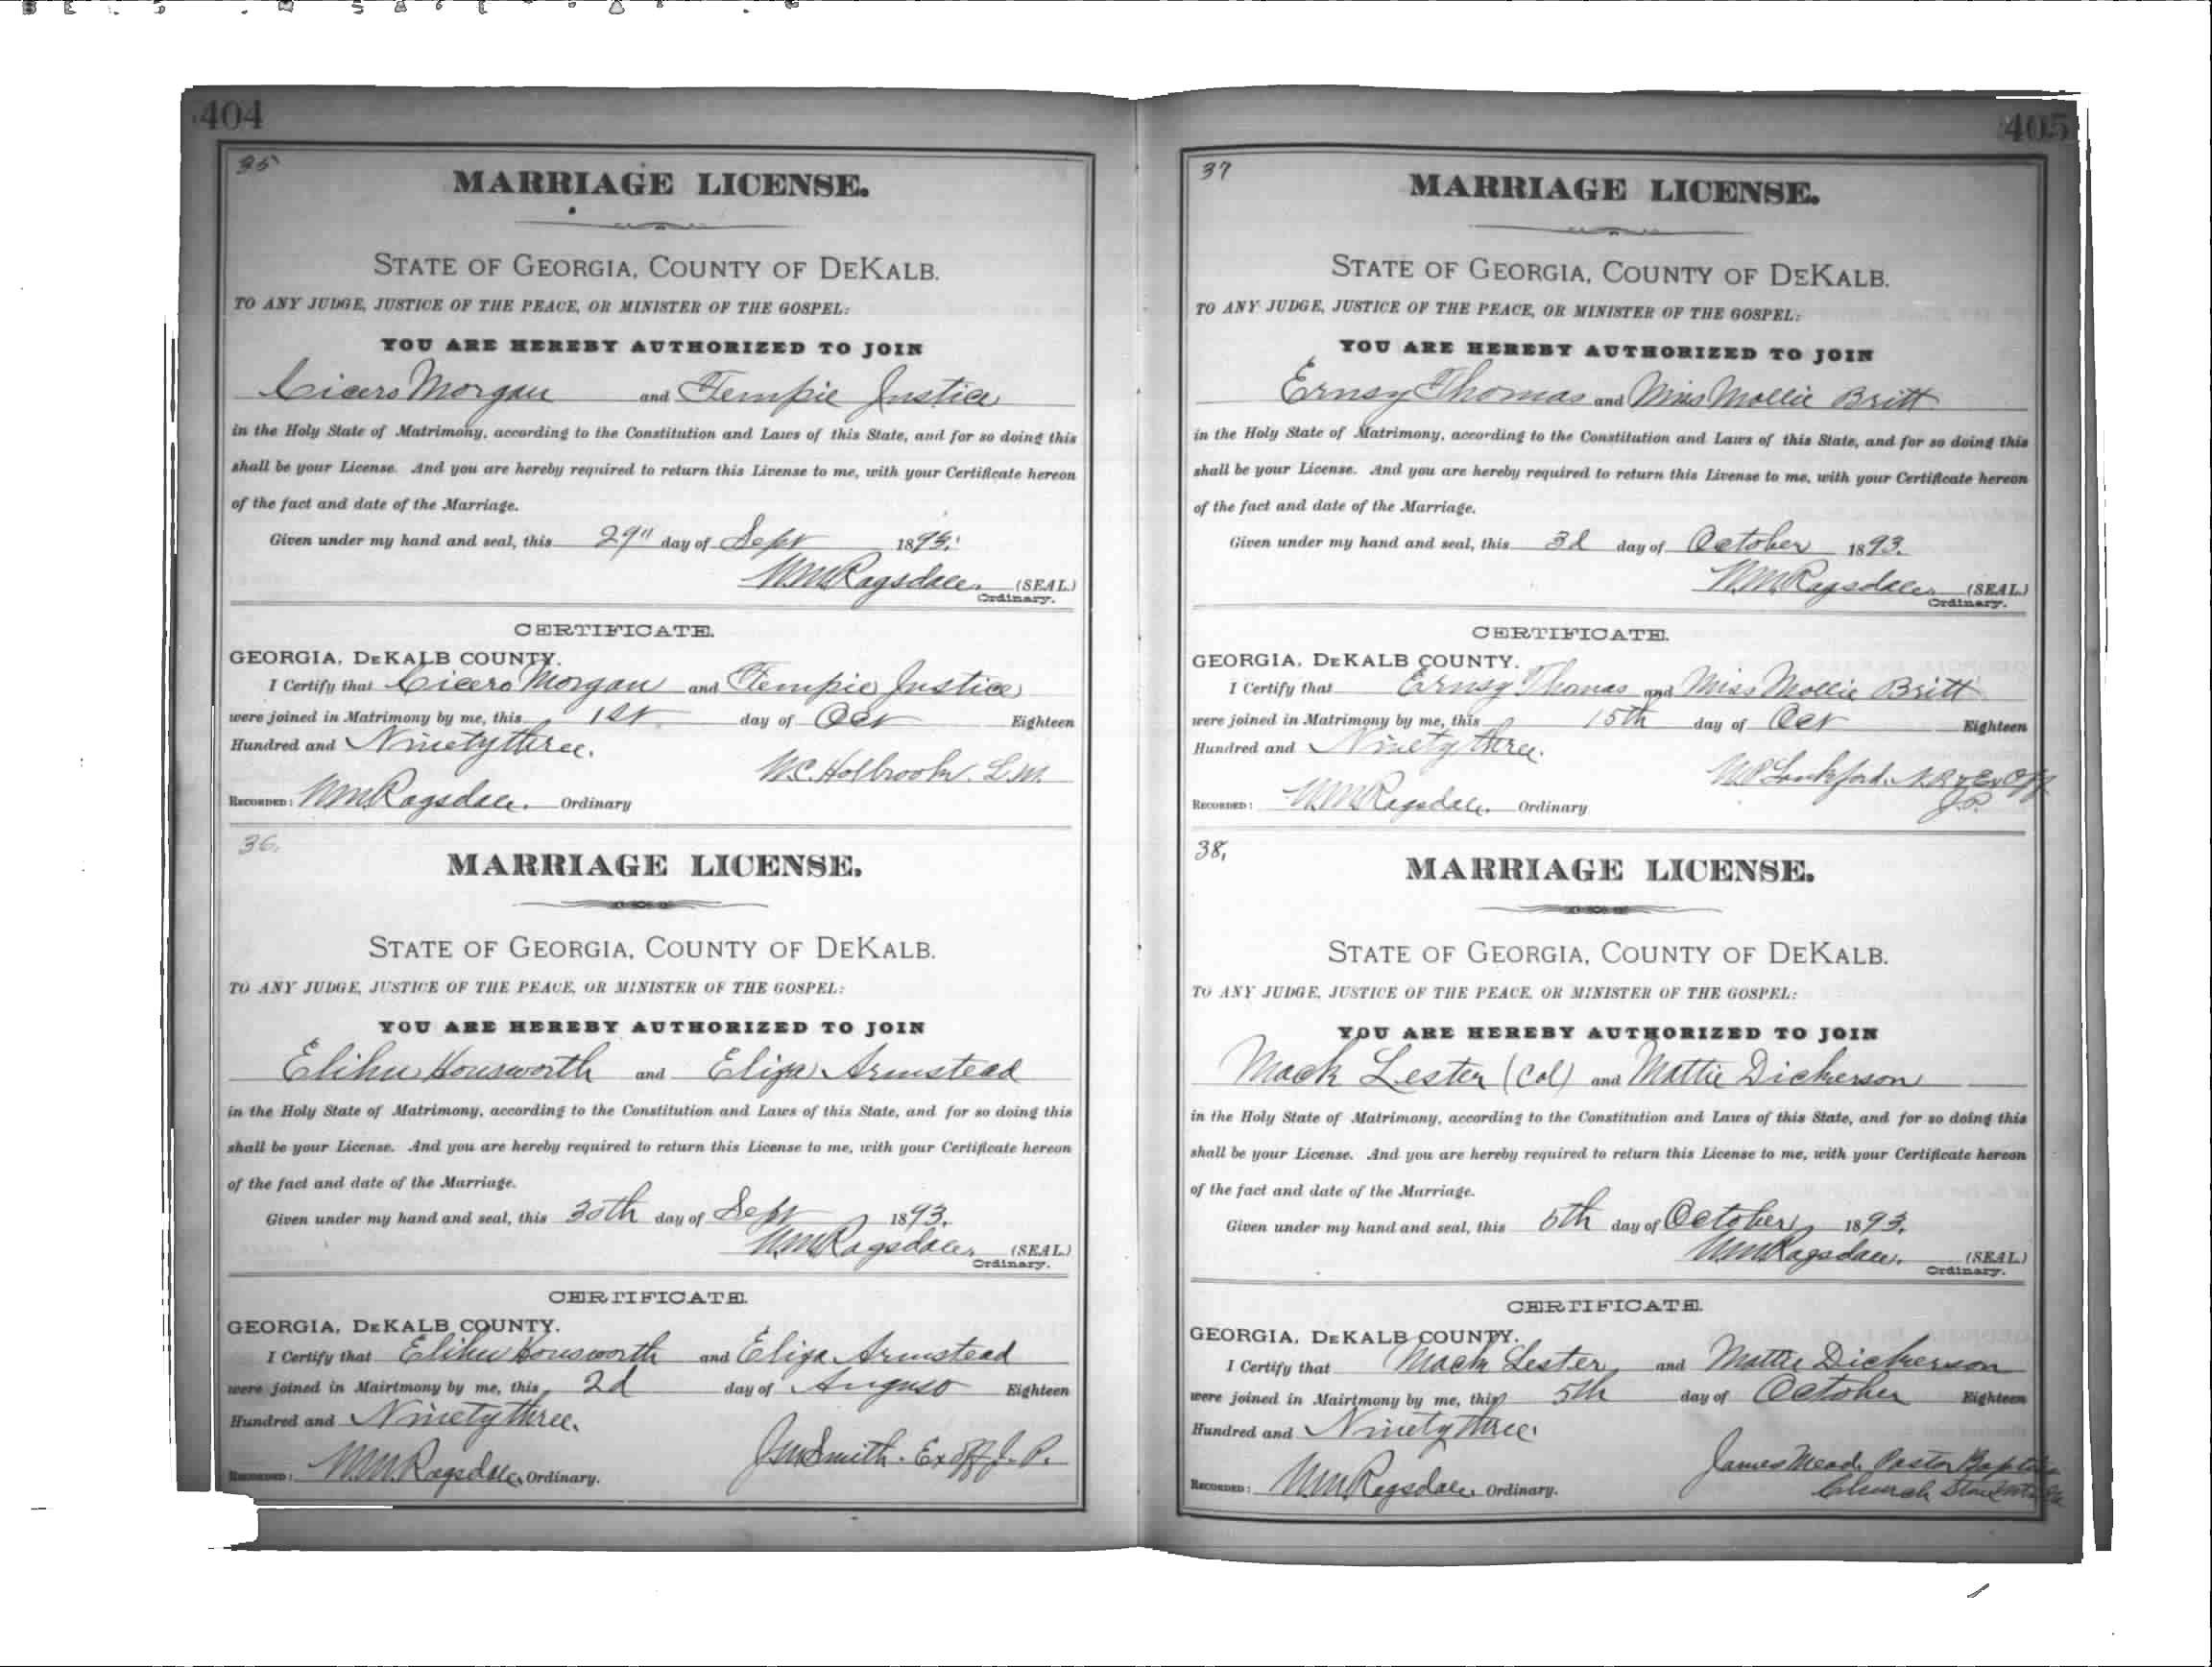 404
35
MARRIAGE LICENSE.
STATE OF GEORGIA, COUNTY OF DEKALB.
TO ANY JUDGE, JUSTICE OF THE PEACE, OR MINISTER OF THE GOSPEL:
YOU ARE HEREBY AUTHORIZED TO JOIN
Cicero Morgan and Tempie Justice
in the Holy State of Matrimony, according to the Constitution and Laws of this State, and for so doing this
shall be your License. And you are hereby required to return this License to me, with your Certificate hereon
of the fact and date of the Marriage.
Given under my hand and seal, this 29" day of Sept 1893.
W.M. Ragsdale. (SEAL.)
Ordinary.
CERTIFICATE.
GEORGIA, DEKALB COUNTY.
I Certify that Cicero Morgan and Tempie Justice
were joined in Matrimony by me, this 1st day of Oct Eighteen
Hundred and Ninety three.
W.C. Holbrook. L.M.
RECORDED: W.M. Ragsdale. Ordinary
36.
MARRIAGE LICENSE.
STATE OF GEORGIA, COUNTY OF DEKALB.
TO ANY JUDGE, JUSTICE OF THE PEACE, OR MINISTER OF THE GOSPEL:
YOU ARE HEREBY AUTHORIZED TO JOIN
Elihu Housworth and Eliza Armstead
in the Holy State of Matrimony, according to the Constitution and Laws of this State, and for so doing this
shall be your License. And you are hereby required to return this License to me, with your Certificate hereon
of the fact and date of the Marriage.
Given under my hand and seal, this 30th day of Sept 1893.
W.M. Ragsdale. (SEAL.)
Ordinary.
CERTIFICATE.
GEORGIA, DEKALB COUNTY.
I Certify that Elihu Housworth and Eliza Armstead
were joined in Mairtmony by me, this 2d day of August Eighteen
Hundred and Ninety three.
J.W. Smith. Ex off J.P.
RECORDED: W.M. Ragsdale Ordinary.
405
37
MARRIAGE LICENSE.
STATE OF GEORGIA, COUNTY OF DEKALB.
TO ANY JUDGE, JUSTICE OF THE PEACE, OR MINISTER OF THE GOSPEL:
YOU ARE HEREBY AUTHORIZED TO JOIN
Ernsy Thomas and Miss Mollie Britt
in the Holy State of Matrimony, according to the Constitution and Laws of this State, and for so doing this
shall be your License. And you are hereby required to return this License to me, with your Certificate hereon
of the fact and date of the Marriage.
Given under my hand and seal, this 3d day of October 1893.
W.M. Ragsdale. (SEAL.)
Ordinary.
CERTIFICATE.
GEORGIA, DEKALB COUNTY.
I Certify that Ernsy Thomas and Miss Mollie Britt
were joined in Matrimony by me, this 15th day of Oct Eighteen
Hundred and Ninety three.
Lankford. Ex Off
J.P.
RECORDED: W.M. Ragsdale. Ordinary
38,
MARRIAGE LICENSE.
STATE OF GEORGIA, COUNTY OF DEKALB.
TO ANY JUDGE, JUSTICE OF THE PEACE, OR MINISTER OF THE GOSPEL:
YOU ARE HEREBY AUTHORIZED TO JOIN
Mack Lester (Col) and Mattie Dickerson
in the Holy State of Matrimony, according to the Constitution and Laws of this State, and for so doing this
shall be your License. And you are hereby required to return this License to me, with your Certificate hereon
of the fact and date of the Marriage.
Given under my hand and seal, this 5th day of October 1893.
W.M. Ragsdale. (SEAL.)
Ordinary.
CERTIFICATE.
GEORGIA, DEKALB COUNTY.
I Certify that Mack Lester and Mattie Dickerson
were joined in Mairtmony by me, this 5th day of October Eighteen
Hundred and Ninety three.
James Mead. Pastor Baptist
Church
RECORDED: W.M. Ragsdale Ordinary.